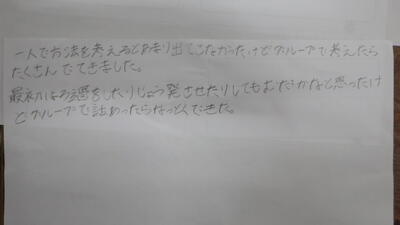 一人で方法を考えるとあまり出てこなかったけどグループで考えたら
たくさんでてきました。
最初はろ過をしたりじょう発させたりしてもむだかなと思ったけ
どグループで話あったらなっとくできた。